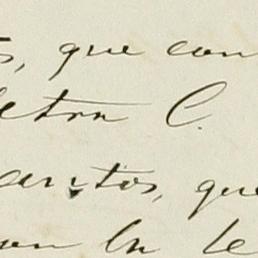 s, que con
letra C.
cartos, que
con la le